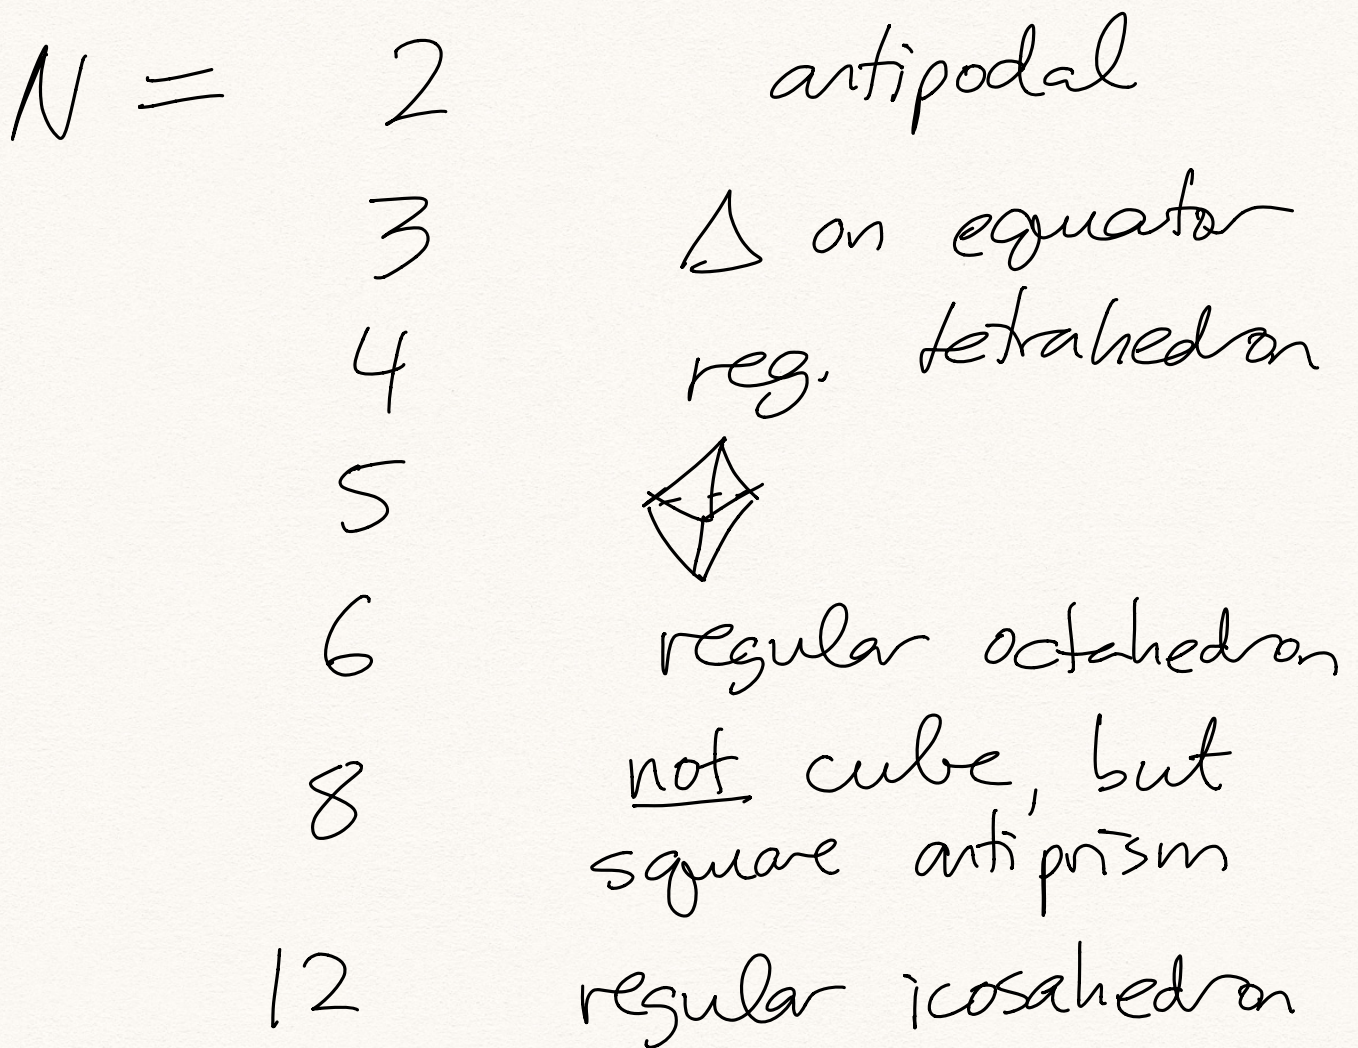 N = 2 antipodal
3 Δ on equator
4 reg. tetrahedron
5
6 regular octahedron
8 not cube, but
square antiprism
12 regular icosahedron